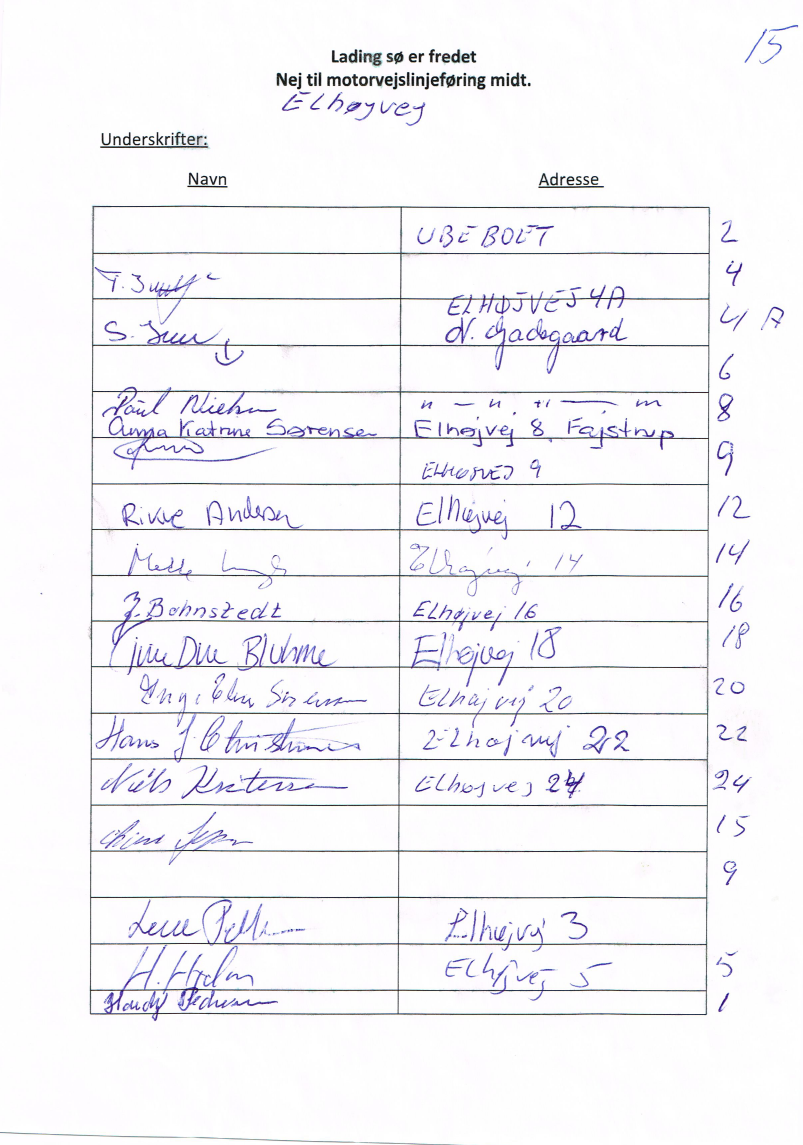 15
Lading sø er fredet
Nej til motorvejslinjeføring midt.
Elhøjvej
Underskrifter:
Navn Adresse
UBEBOET 2
4
ELHØJVEJ 4A
S. Juul N. Gadegaard 4 A
6
Poul 8
Anna Katrine Sørensen Elhøjvej 8, Fajstrup
ELHØJVEJ 9 9
Rikke Andersen Elhøjvej 12 12
Mette Elhøjvej 14 14
J. Bohnstedt Elhøjvej 16 16
Due Bluhme Elhøjvej 18 18
Sørensen Elhøjvej 20 20
Hans J Christensen Elhøjvej 22 22
Niels Elhøjvej 24 24
15
9
Lene Elhøjvej 3
H. Elhøjvej 5 5
Pedersen 1